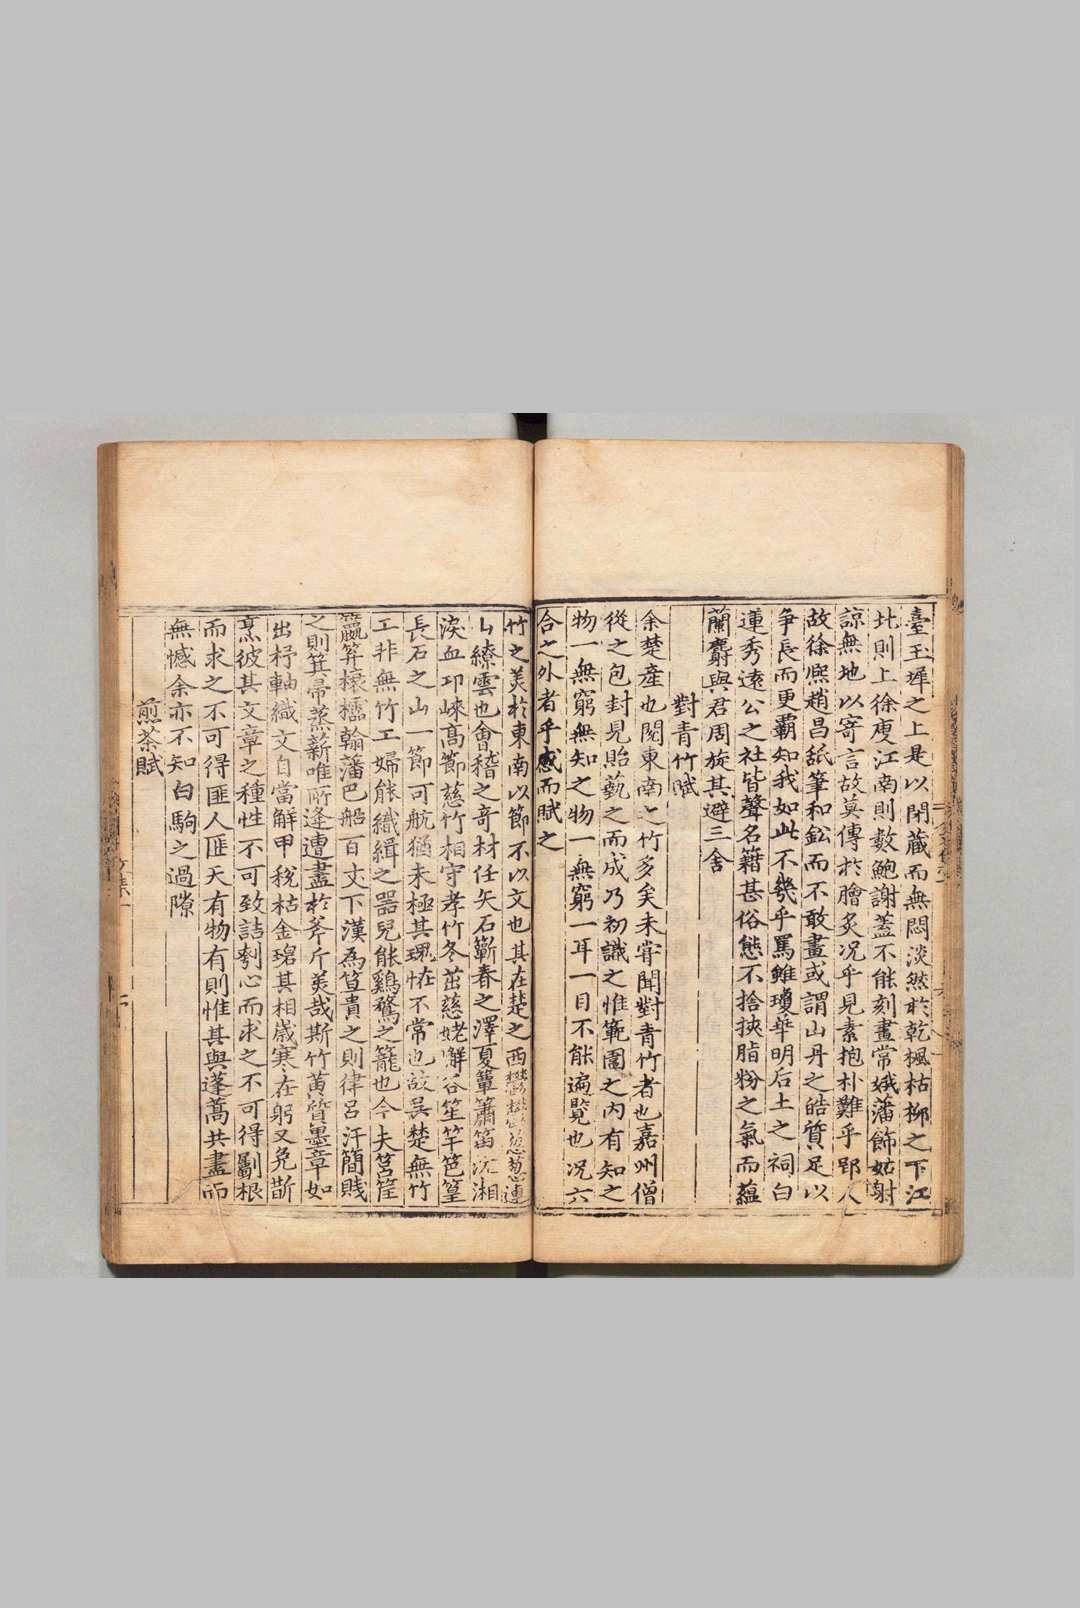 臺玉墀之上是以閉藏而無悶淡然於乾楓枯柳之下江
北則上徐庾江南則數鮑謝蓋不能刻畫常娥藩飾姑射
諒無地以寄言故莫傳於膾炙況乎見素抱朴難乎郢人
故徐熙趙昌舐筆和鉛而不敢畫或謂山丹之皓質足以
争長而更霸知我如此不幾乎罵雖瓊華明后土之祠白
蓮秀遠公之社皆聲名籍甚俗態不捨挾脂粉之氣而蘊
蘭麝與君周旋其避三舍
對青竹賦
余楚產也閱東南之竹多矣未甞聞對青竹者也嘉州僧
從之包封見貽藝之而成乃初識之惟範圍之內有知之
物一無窮無知之物一無窮一耳一目不能遍覽也况六
合之外者乎感而賦之
竹之美於東南以節不以文也其在楚之西 葱葱連
山繚雲也會稽之竒材任矢石蘄春之澤夏簟簫笛沅湘
淚血卭崍高節慈竹相守孝竹冬茁慈姥嶰谷笙竽笆篁
長石之山一節可航猶未極其瑰恠不常也故吴楚無竹
工非無竹工婦能織緝之器兒能鷄鶩之籠也今夫筥筐
籯筭榱櫺輪藩巴船百丈下漢為笪貴之則律呂汗簡賤
之則箕帚蒸薪唯所逢遭盡於斧斤美哉斯竹黄質墨章如
出杼軸織文自當解甲稅枯金碧其相歲寒在躬又免斮
烹彼其文章之種性不可致詰刳心而求之不可得劚根
而求之不可得匪人匪天有物有則惟其與蓬蒿共盡而
無憾余亦不知白駒之過隙
煎茶賦